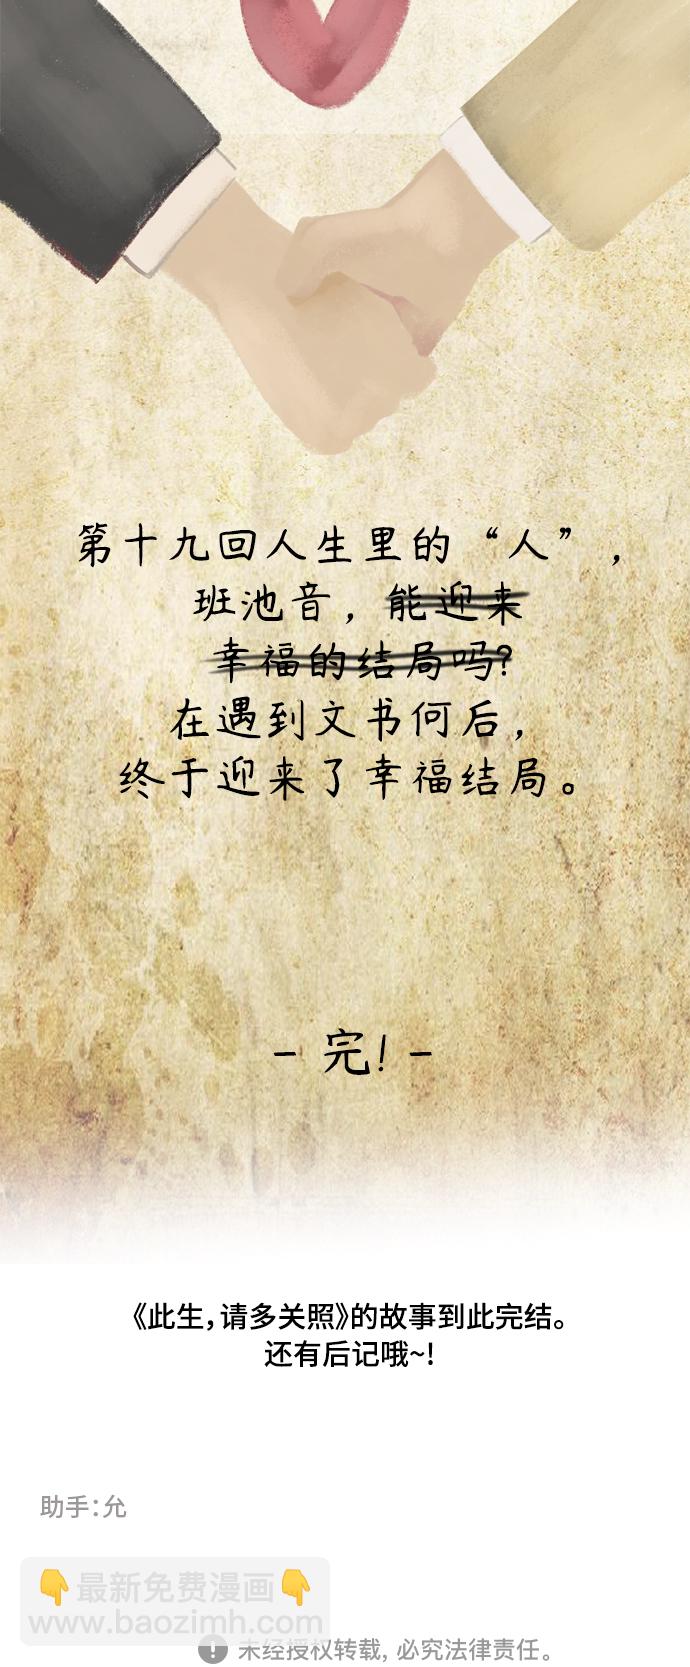 第十九回人生里的“人”，
班池音，能迎来
幸福的结局吗?
在遇到文书何后，
终于迎来了幸福结局。
- 完! -
《此生，请多关照》的故事到此完结。
还有后记哦~!
助手：允
👇最新免费漫画👇
www.baozimh.com
未经授权转载，必究法律责任。